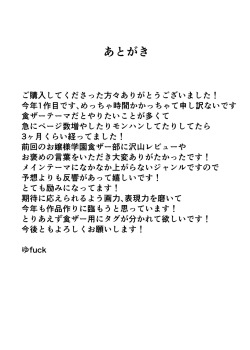 あとがき
ご購入してくださった方々ありがとうございました！
今年1作目です、めっちゃ時間かかっちゃて申し訳ないです
食ザーテーマだとやりたいことが多くて
急にページ数増やしたりモンハンしてたりしてたら
3ヶ月くらい経ってました！
前回のお嬢様学園食ザー部に沢山レビューや
お褒めの言葉をいただき大変ありがたかったです！
メインテーマになかなか上がらないジャンルですので
予想よりも反響があって嬉しいです！
とても励みになってます！
期待に応えられるよう画力、表現力を磨いて
今年も作品作りに臨もうと思っています！
とりあえず食ザー用にタグが分かれて欲しいです！
今後ともよろしくお願いします！
ゆfuck